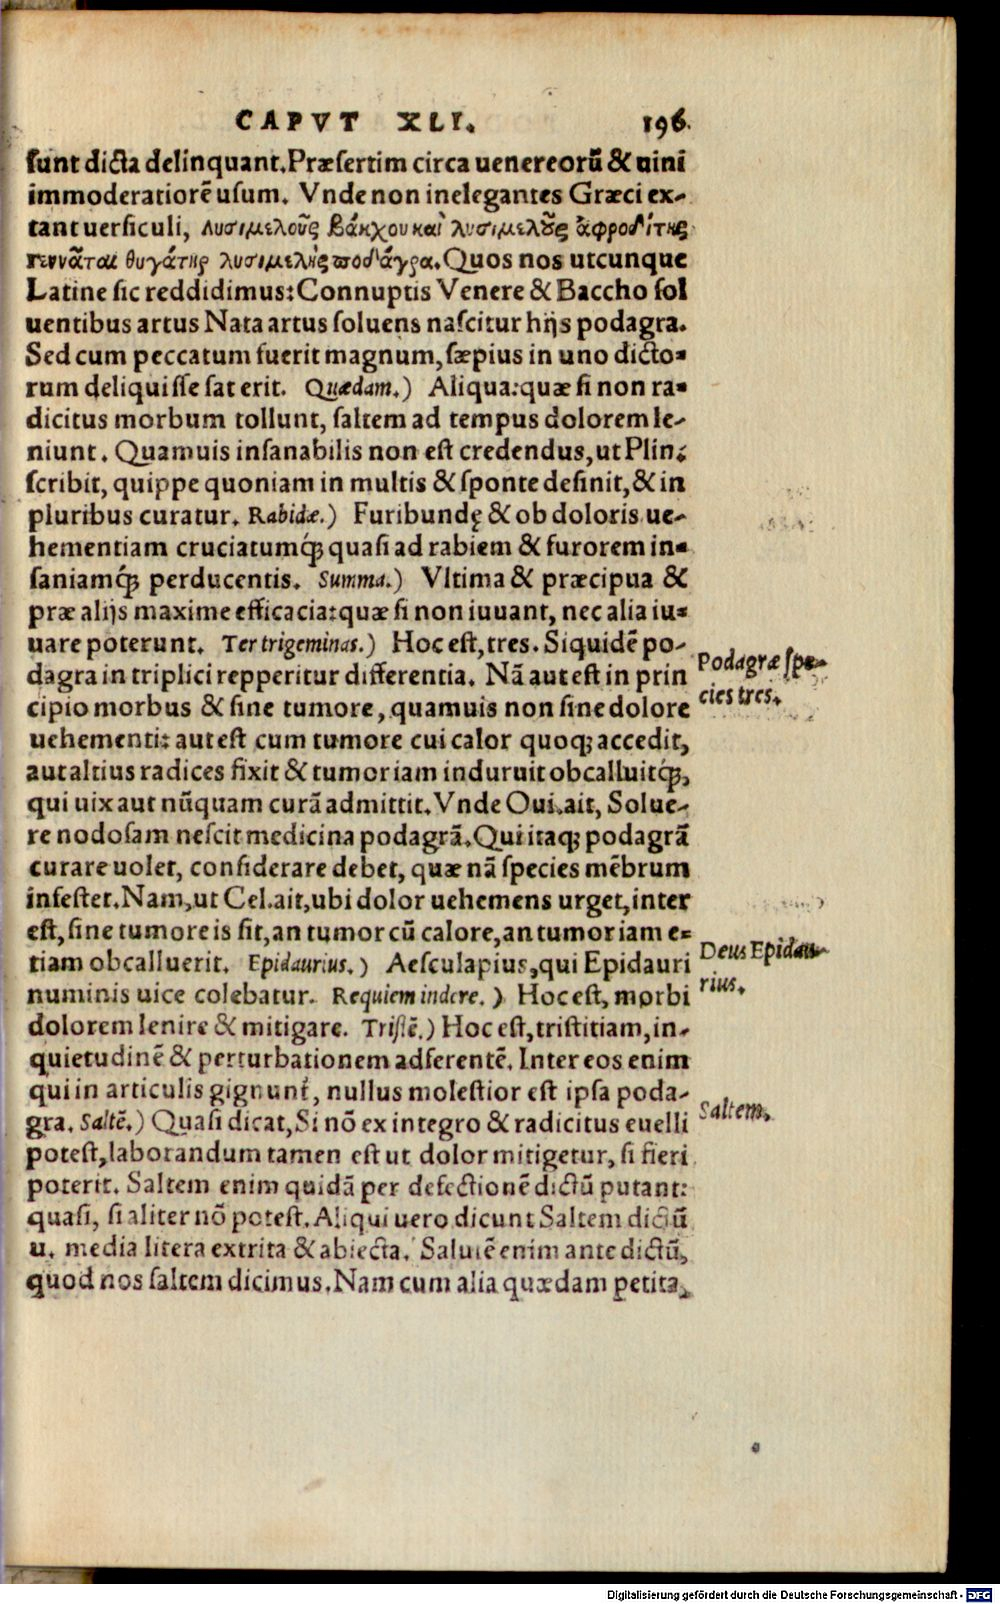 CAPVT XLI. 196.
sunt dicta delinquant. Præsertim circa uenereorũ & uini
immoderatiorẽ usum. Vnde non inelegantes Græci ex-
tant uersiculi, Λυσιμελοῦς βάκχου καὶ λυσιμελοῦς ἀφροδίτης
γεννᾶται θυγάτηρ λυσιμελὴς ποδάγρα. Quos nos utcunque
Latine sic reddidimus: Connuptis Venere & Baccho sol
uentibus artus Nata artus soluens nascitur hijs podagra.
Sed cum peccatum fuerit magnum, sæpius in uno dicto-
rum deliquisse sat erit. Quædam.) Aliqua: quæ si non ra-
dicitus morbum tollunt, saltem ad tempus dolorem le-
niunt. Quamuis insanabilis non est credendus, ut Plin:
scribit, quippe quoniam in multis & sponte desinit, & in
pluribus curatur. Rabidæ.) Furibundę & ob doloris ue-
hementiam cruciatumq́; quasi ad rabiem & furorem in-
saniamq́; perducentis. Summa.) Vltima & præcipua &
præ alijs maxime efficacia: quæ si non iuuant, nec alia iu-
uare poterunt. Ter trigeminas.) Hoc est, tres. Siquidẽ po-
dagra in triplici repperitur differentia. Nã aut est in prin
cipio morbus & sine tumore, quamuis non sine dolore
uehementi: aut est cum tumore cui calor quoq; accedit,
aut altius radices fixit & tumor iam induruit obcalluitq́;,
qui uix aut nũquam curã admittit. Vnde Oui. ait, Solue-
re nodosam nescit medicina podagrã. Qui itaq; podagrã
curare uolet, considerare debet, quæ nã species mẽbrum
infestet. Nam, ut Cel. ait, ubi dolor uehemens urget, inter
est, sine tumore is sit, an tumor cũ calore, an tumor iam e-
tiam obcalluerit. Epidaurius.) Aesculapius, qui Epidauri
numinis uice colebatur. Requiem indere.) Hoc est, morbi
dolorem lenire & mitigare. Tristẽ.) Hoc est, tristitiam, in-
quietudinẽ & perturbationem adferentẽ. Inter eos enim
qui in articulis gignunt̃, nullus molestior est ipsa poda-
gra. Saltẽ.) Quasi dicat, Si nõ ex integro & radicitus euelli
potest, laborandum tamen est ut dolor mitigetur, si fieri
poterit. Saltem enim quidã per defectionẽ dictũ putant:
quasi, si aliter nõ potest. Aliqui uero dicunt Saltem dictũ
u. media litera extrita & abiecta. Salutẽ enim ante dictũ,
quod nos saltem dicimus. Nam cum alia quædam petita
Podagræ spe-
cies tres.
Deus Epidau-
rius.
Saltem.
Digitalisierung gefördert durch die Deutsche Forschungsgemeinschaft - DFG